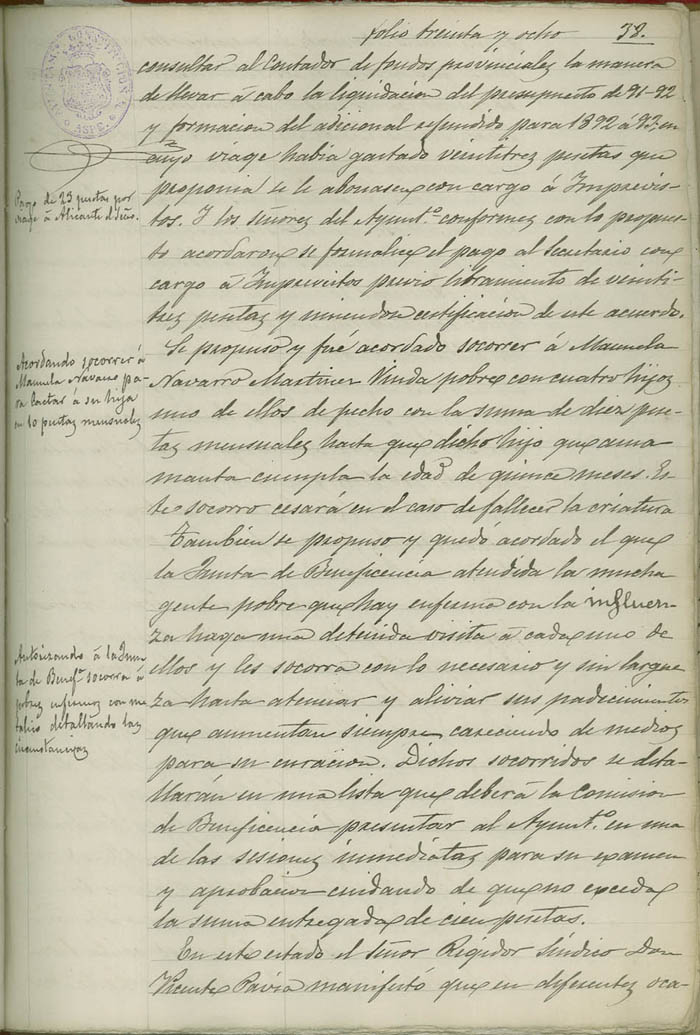 folio treinta y ocho 38.
AYUNTAMº CONSTITUCIONAL
ASPE
consultar al Contador de fondos provinciales la manera
de llevar á cabo la liquidacion del presupuesto de 91-92
y formacion del adicional refundido para 1892 á 93, en
cuyo viage habia gastado veintitrez pesetas que
proponia se le abonasen con cargo á Imprevis-
tos. Y los señores del Ayuntº conformes con lo propues-
to acordaron se formalice el pago al Secretario con
cargo á Imprevistos previo libramiento de veinti-
trez pesetas y uniendose certificacion de este acuerdo.
Pago de 23 pesetas por
viage á Alicante el Srio.
Se propuso y fué acordado socorrer á Manuela
Navarro Martinez Viuda pobre con cuatro hijos
uno de ellos de pecho con la suma de diez pese-
tas mensuales hasta que dicho hijo que ama-
manta cumpla la edad de quince meses. Es-
te socorro cesará en el caso de fallecer la criatura
Acordando socorrer á
Manuela Navarro pa-
ra lactar á su hija
en 10 pesetas mensuales
Tambien se propuso y quedó acordado el que
la Junta de Beneficencia atendida la mucha
gente pobre que hay enferma con la influen-
za haga una detenida visita á cada uno de
ellos y les socorra con lo necesario y sin largue-
za hasta atenuar y aliviar sus padecimientos
que aumentan siempre careciendo de medios
para su curacion. Dichos socorridos se deta-
llarán en una lista que deberá la Comision
de Beneficencia presentar al Ayuntº. en una
de las sesiones inmediatas para su examen
y aprobacion cuidando de que no exceda
la suma entregada de cien pesetas.
Autorizando á la Jun-
ta de Benefª socorra á
pobres enfermos con me-
talico detallando las
circunstancias
En este estado el señor Regidor Sindico Don
Vicente Pavia manifestó que en diferentes oca-